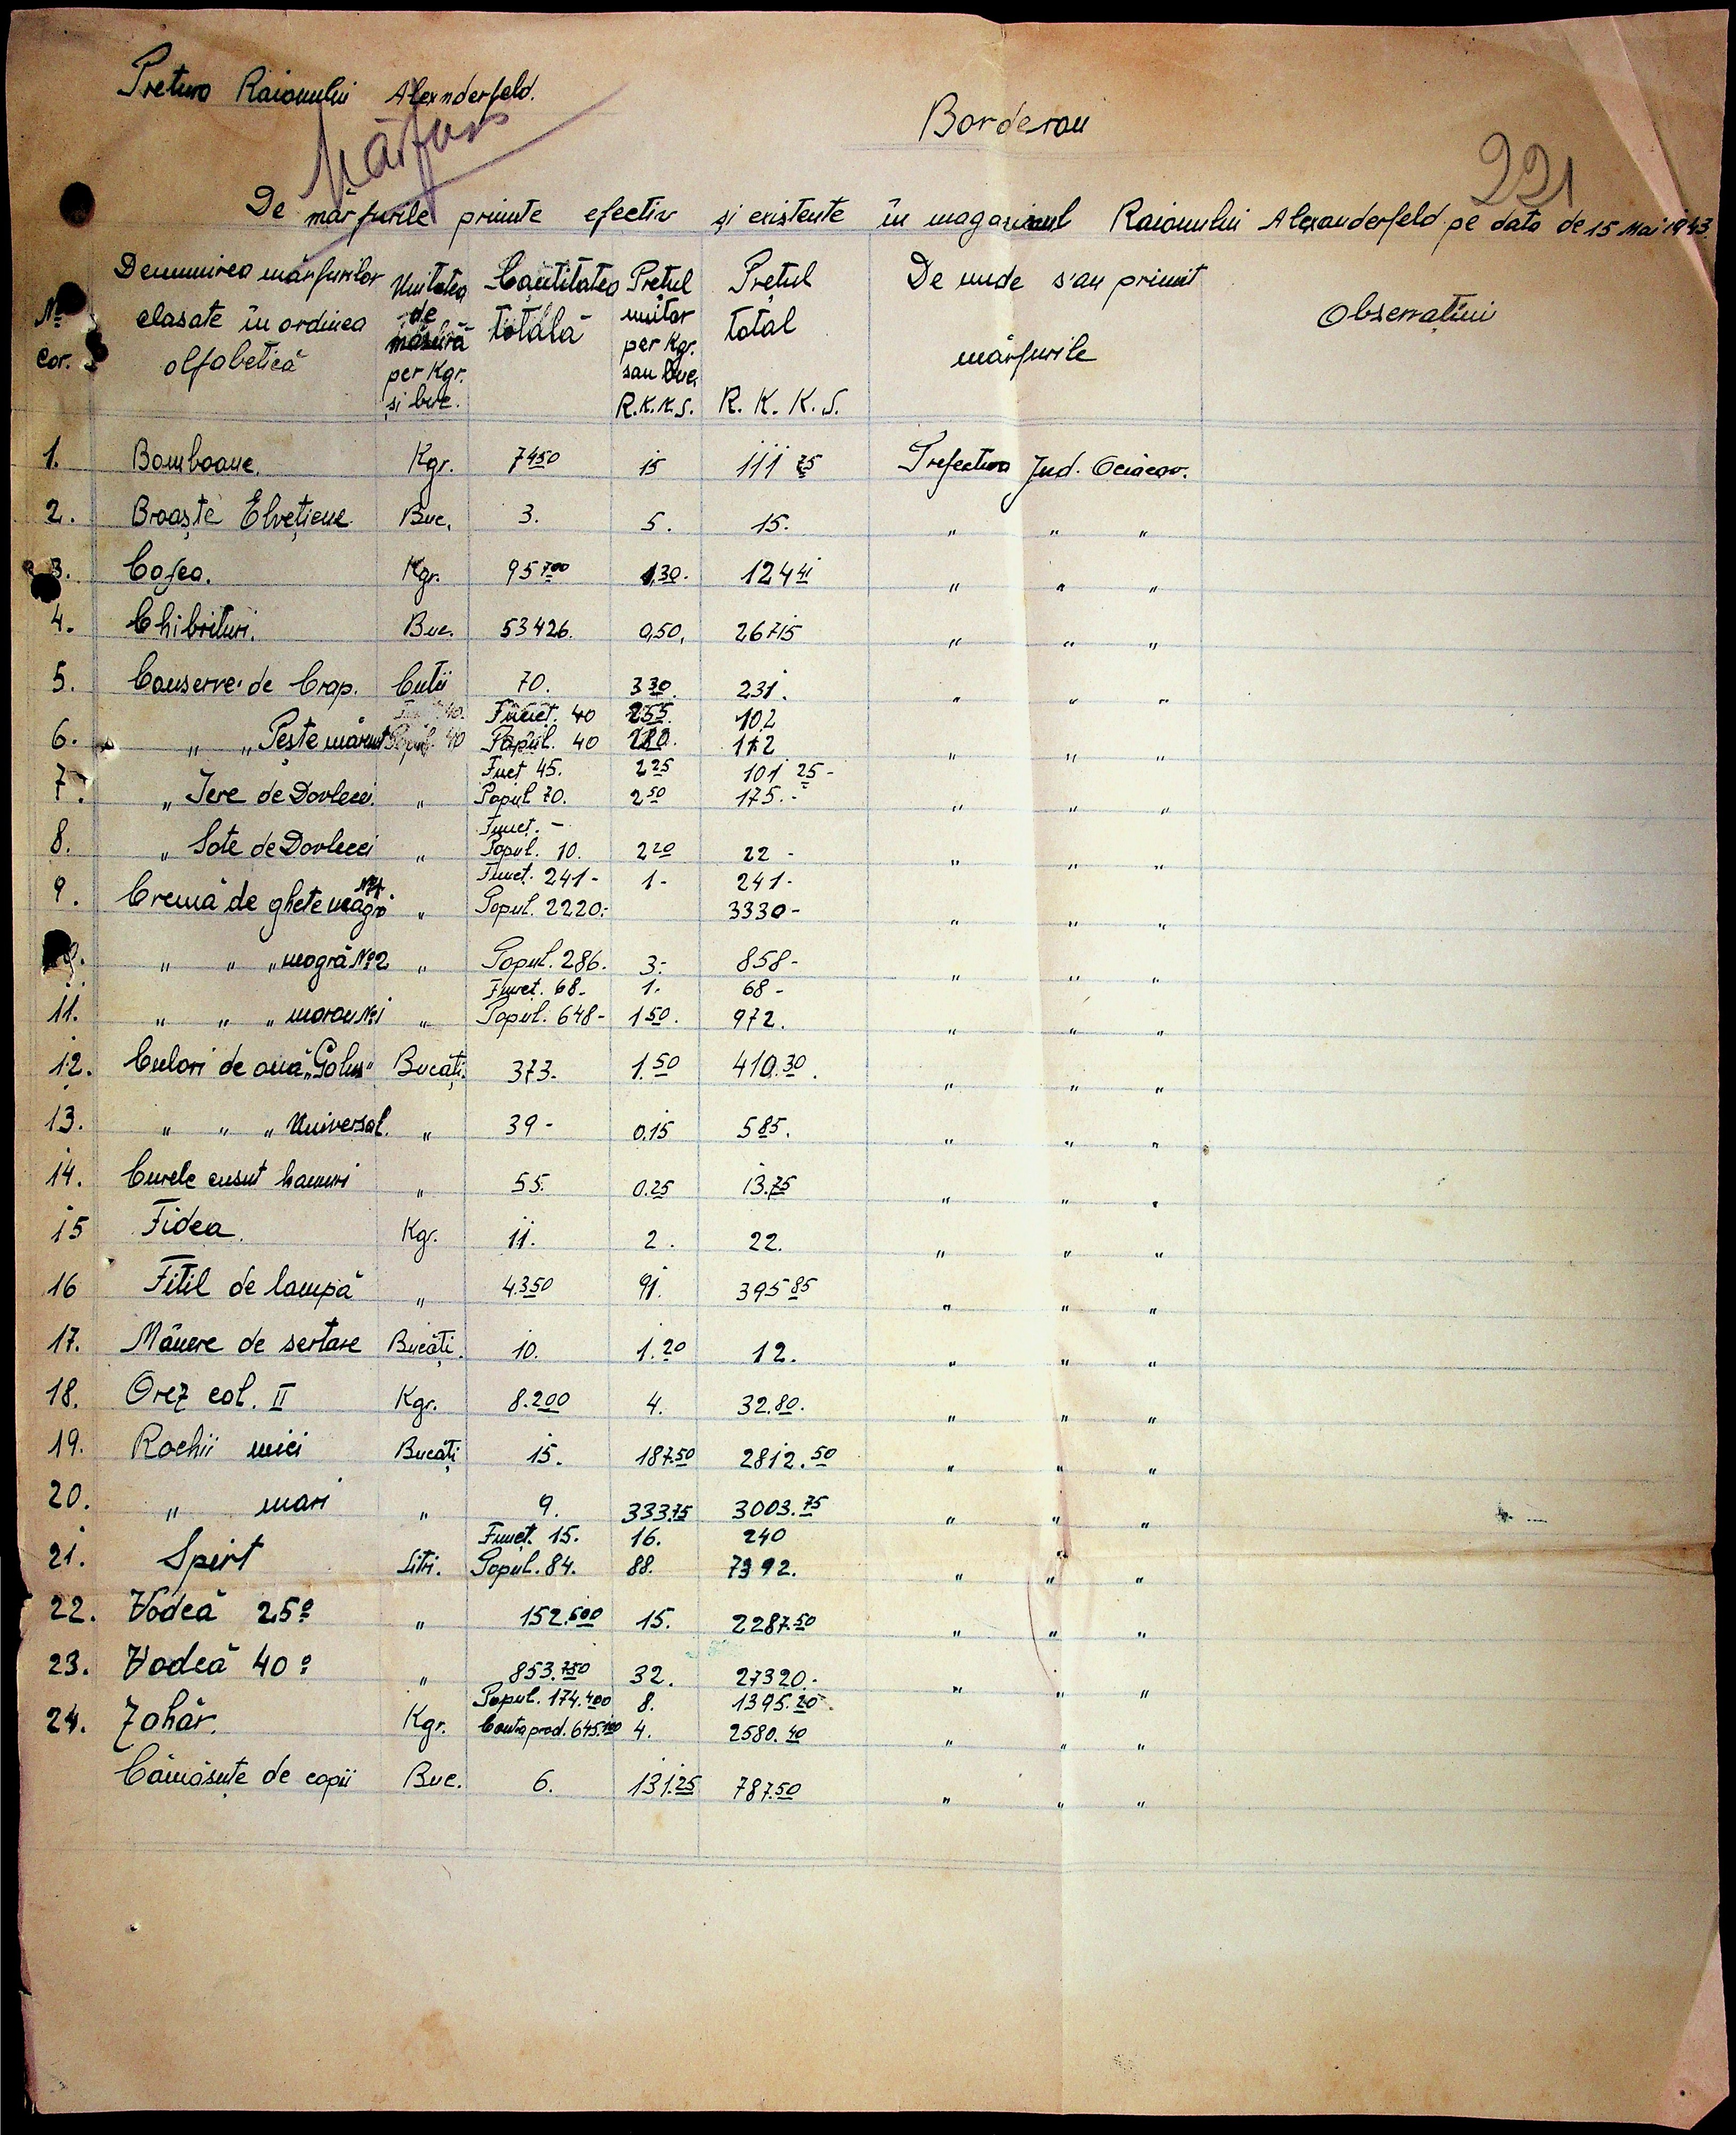 Pretura Raionului Alexnderfeld.
Mărfuri
Borderou
221
De mărfurile primite efectiv și existente în magazinul Raionului Alexanderfeld pe data de 15 Mai 1943.
No cor. Denumirea mărfurilor clasate în ordinea alfabetică Unitatea de măsură per Kgr. și buc. Cantitatea totală Prețul unitar per Kgr. sau buc. R.K.K.S. Prețul total R.K.K.S. De unde s'au primit mărfurile Observațiuni
1. Bomboane. Kgr. 7450 15 111 75 Prefectura Jud. Oceacov.
2. Broaște Elvețiene Buc. 3. 5. 15. " " "
3. Cafea. Kgr. 95 700 1,30. 124 41 " " "
4. Chibrituri. Buc. 53426. 0,50, 26715 " " "
5. Conserve de Crap. Cutii 70. 3 30. 231. " " "
Funct. 40 2 55. 102
6. " " Pește mărunt Popul. 40 2 80. 112 " " "
Funct 45. 2 25 101 25 -
7. " Icre de Dovlecei. " Popul 70. 2 50 175.- " " "
Funct. -
8. " Sote de Dovlecei " Popul. 10. 2 20 22 - " " "
Funct. 241- 1- 241-
9. Cremă de ghete neagră No 1 " Popul. 2220.- 3330- " " "
" " " neagră No 2 " Popul. 286. 3.- 858- " " "
Funct. 68- 1. 68-
11. " " " maron No 1 " Popul. 648- 1 50. 972. " " "
12. Culori de ouă „Galus" Bucăți. 373. 1.50 410.30. " " "
13. " " " Universal. " 39- 0.15 585. " " "
14. Curele cusut hamuri " 55. 0.25 13.75 " " "
15 Fidea. Kgr. 11. 2. 22. " " "
16 Fitil de lampă " 4.350 91. 395 85 " " "
17. Mânere de sertare Bucăți. 10. 1.20 12. " " "
18. Orez cal. II Kgr. 8.200 4. 32.80. " " "
19. Rochii mici Bucăți 15. 187.50 2812.50 " " "
20. " mari " 9. 333.75 3003.75 " " "
Funct. 15. 16. 240
21. Spirt Litri. Popul. 84. 88. 7392. " " "
22. Vodcă 25º " 152.500 15. 2287.50 " " "
23. Vodcă 40º " 853.750 32. 27320.- " " "
Popul. 174.400 8. 1395.20
24. Zahăr. Kgr. Contra prod. 645.100 4. 2580.40 " " "
Cămăsuțe de copii Buc. 6. 131.25 787.50 " " "